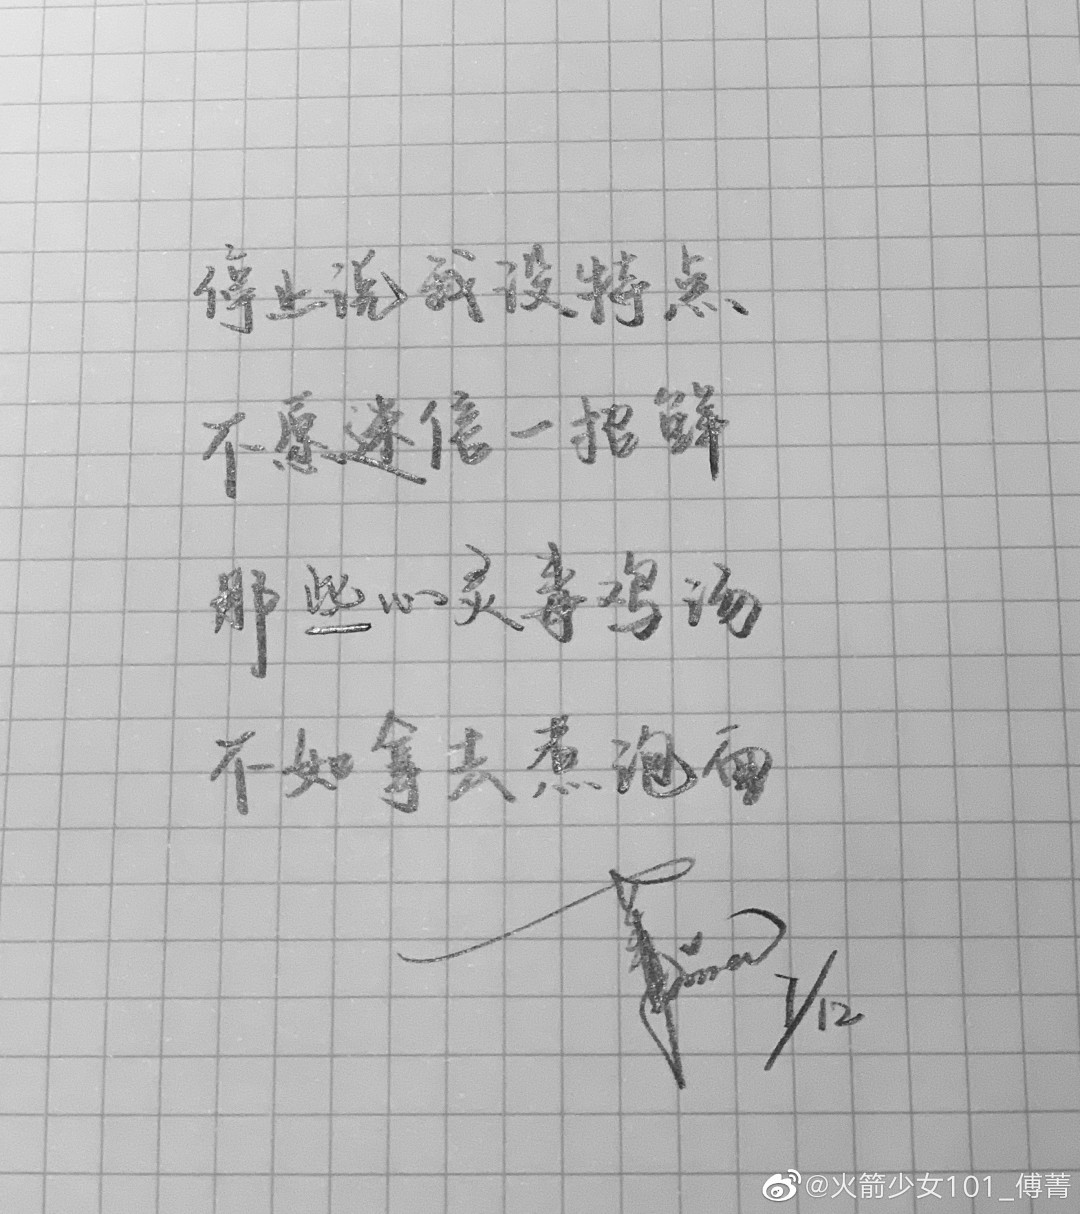 停止说我没特点、
不愿迷信一招鲜
那些心灵毒鸡汤
不如拿去煮泡面
7/12
@火箭少女101_傅菁